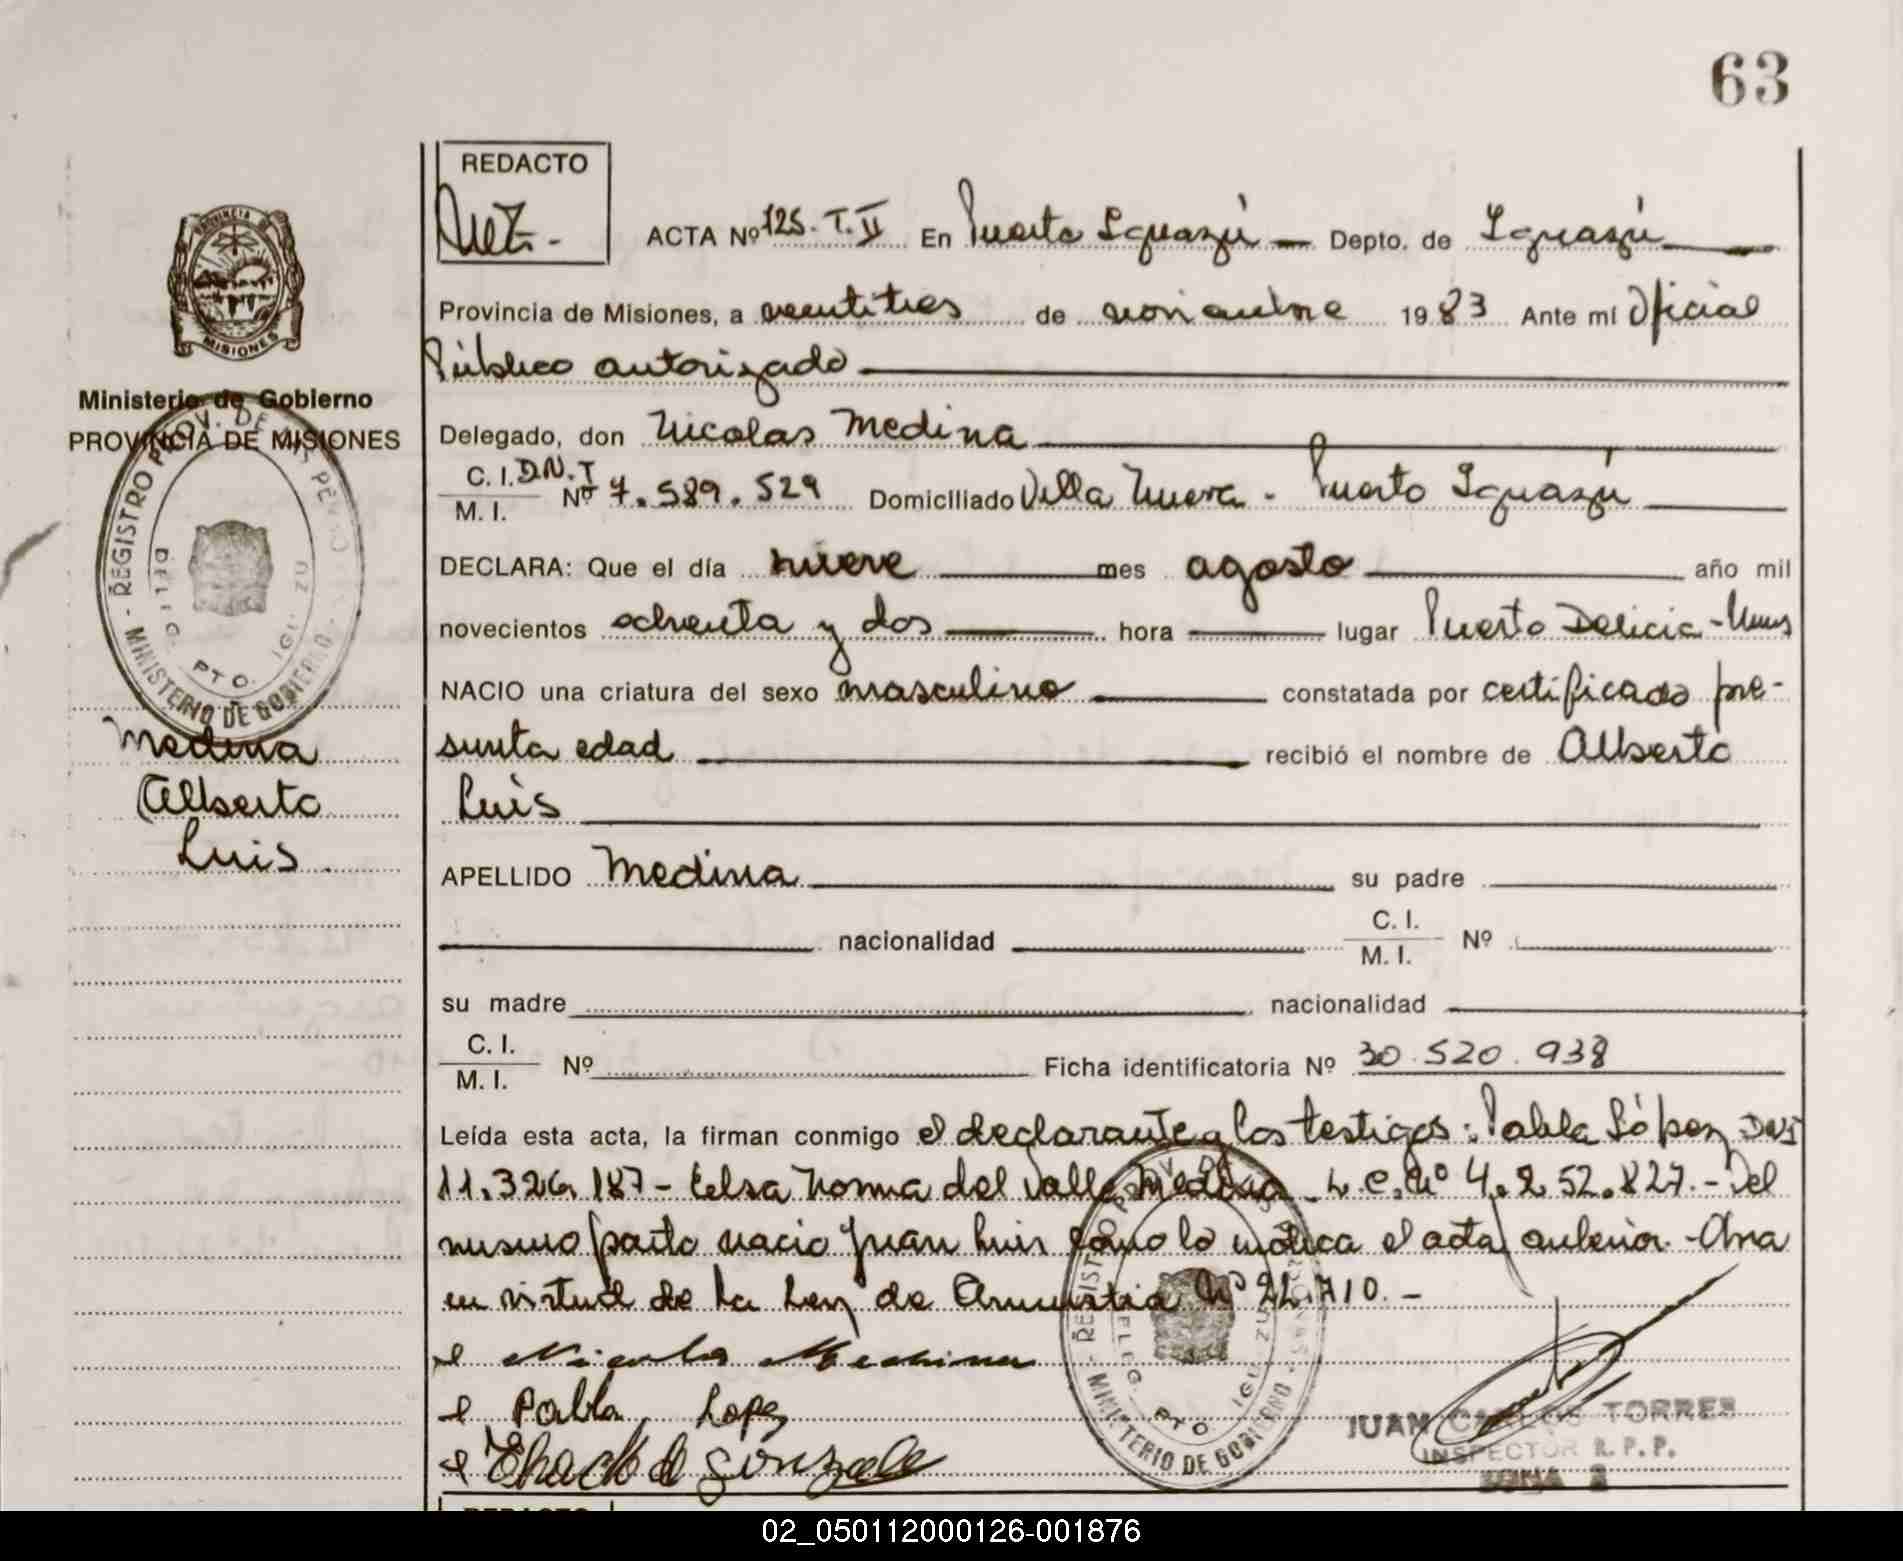 63
REDACTO
ACTA Nº 125. T. II En Puerto Iguazú — Depto. de Iguazú
Provincia de Misiones, a veintitres de noviembre 1983 Ante mí Oficial
Público autorizado
Delegado, don Nicolas Medina
C. I. D.N.I
M. I. Nº 7.589.529 Domiciliado Villa Nueva - Puerto Iguazú
DECLARA: Que el día nueve mes agosto año mil
novecientos ochenta y dos hora lugar Puerto Delicia - Mnes
NACIO una criatura del sexo masculino constatada por certificado pre-
sunta edad recibió el nombre de Alberto
Luis
APELLIDO Medina su padre
nacionalidad C. I. M. I. Nº
su madre nacionalidad
C. I. M. I. Nº Ficha identificatoria Nº 30.520.938
Leída esta acta, la firman conmigo el declarante y los testigos: Pabla López DNI
11.326.187 - Celsa Norma del Valle Medina - L.C.Nº 4.252.827.- Del
mismo parto nacio Juan Luis como lo indica el acta anterior.-
en virtud de la Ley de Amnistia Nº 22.710.-
Nicolas Medina
Pabla Lopez
JUAN CARLOS TORRES
INSPECTOR R. P. P.
ZONA 2
PROVINCIA DE
MISIONES
Ministerio de Gobierno
PROVINCIA DE MISIONES
REGISTRO PROV. DE LAS PERSONAS
MINISTERIO DE GOBIERNO
DELEG. PTO. IGUAZU
Medina
Alberto
Luis
REGISTRO PROV. DE LAS PERSONAS
MINISTERIO DE GOBIERNO
DELEG. PTO. IGUAZU
REDACTO
02_050112000126-001876